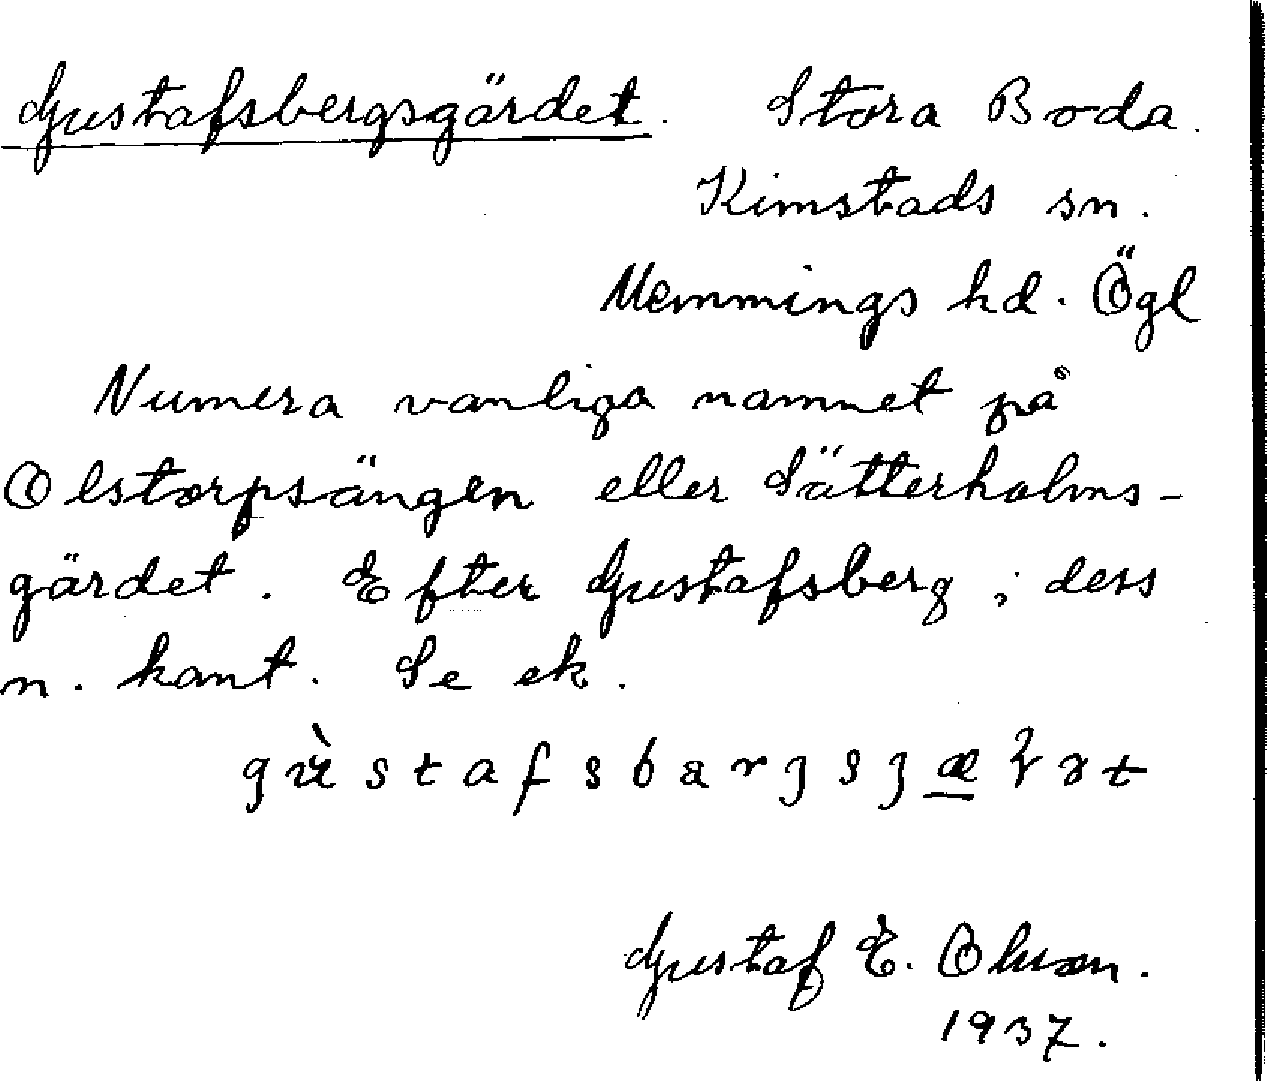 Gustafsbergsgärdet. Stora Boda.
Kimstads sn.
Memmings hd. Ögl
Numera vanliga namnet på
Olstorpsängen eller Sätterholms-
gärdet. Efter Gustafsberg i dess
n. kant. Se ek.
Gustaf E. Olsson.
1937.